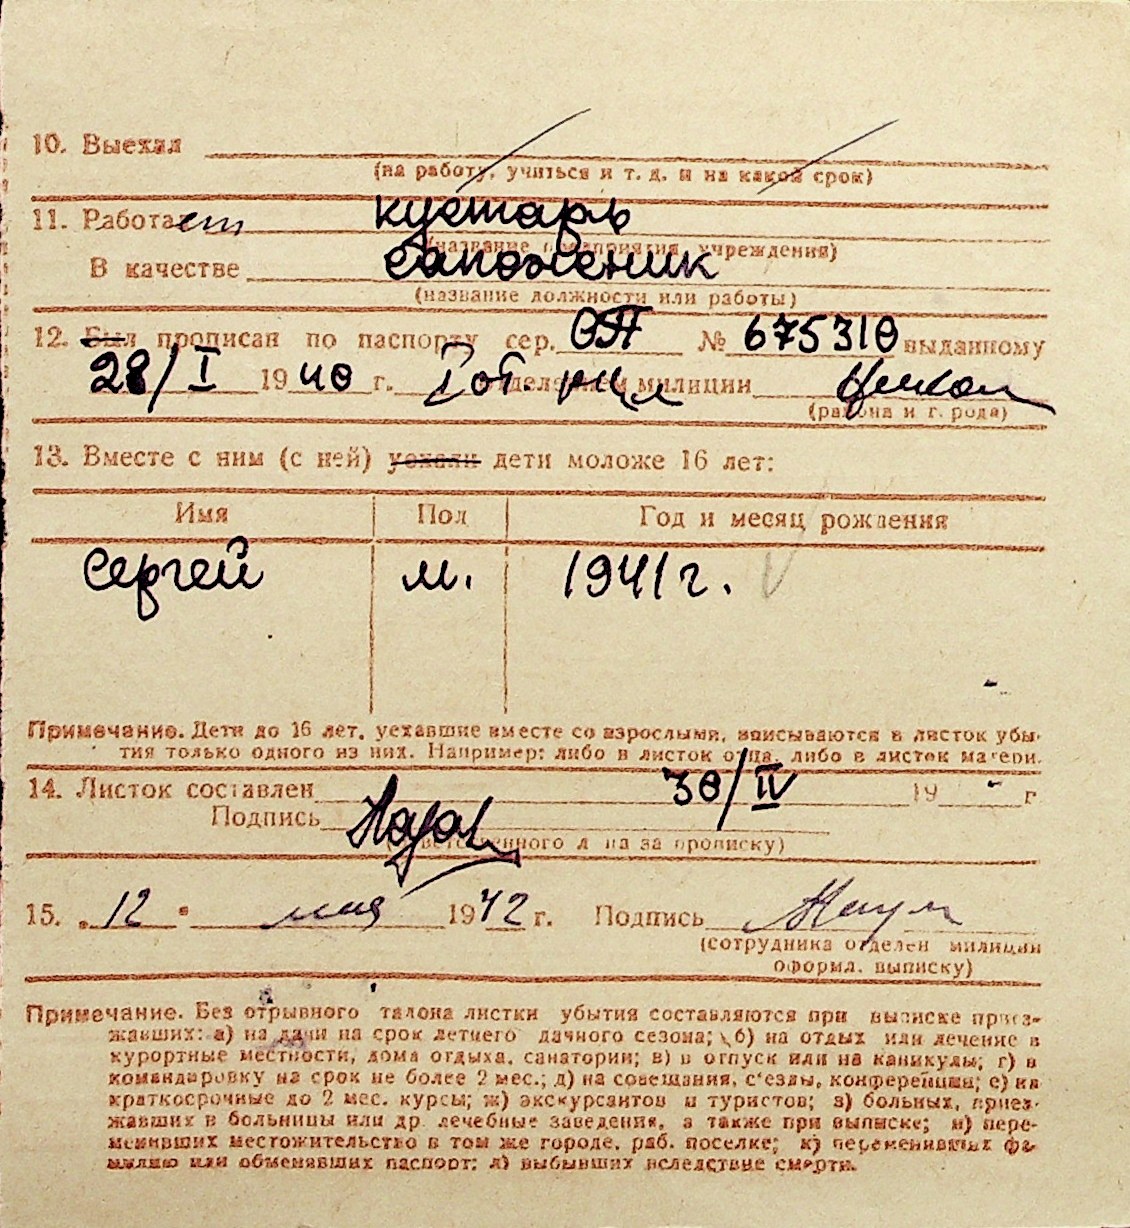 10. Выехал
(на работу, учиться и т. д. и на какой срок)
11. Работает кустарь
(название предприятия, учреждения)
В качестве сапоженик
(название должности или работы)
12. Был прописан по паспорту сер. № 675310 выданному
28/I 1940 г. I от. отделением милиции
(района и г. рода)
13. Вместе с ним (с ней) уехали дети моложе 16 лет:
Имя Пол Год и месяц рождения
Сергей м. 1941 г.
Примечание. Дети до 16 лет, уехавшие вместе со взрослыми, вписываются в листок убы-
тия только одного из них. Например: либо в листок отца, либо в листок матери.
14. Листок составлен 30/IV 19 г
Подпись
(ответственного л на за прописку)
15. „12" мая 1942 г. Подпись
(сотрудника отделен милиции
оформл. выписку)
Примечание. Без отрывного талона листки убытия составляются при выписке приез-
жавших: а) на дачи на срок летнего дачного сезона; б) на отдых или лечение в
курортные местности, дома отдыха, санатории; в) в отпуск или на каникулы; г) в
командировку на срок не более 2 мес.; д) на совещания, с'езды, конференции; е) на
краткосрочные до 2 мес. курсы; ж) экскурсантов и туристов; з) больных, приез-
жавших в больницы или др. лечебные заведения, а также при выписке; и) пере-
менивших местожительство в том же городе, раб. поселке; к) переменивших фа-
милию или обменявших паспорт; л) выбывших вследствие смерти.